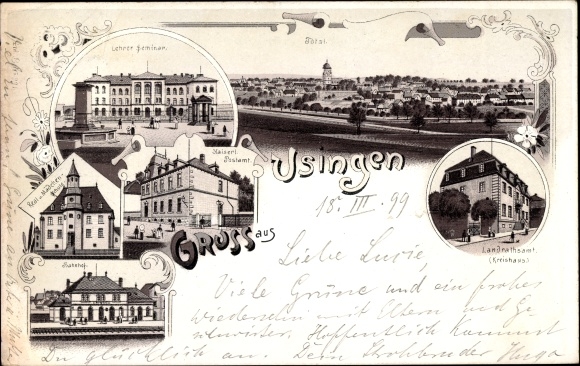 Lehrer Seminar.
Total.
Kaiserl.
Postamt.
Real- u. Mädchen
Bahnhof.
Landrathsamt.
(Kreishaus)
Gruss aus
Usingen
18. III. 99
Liebe Lucie,
Viele Grüsse und ein frohes
Wiedersehen mit Eltern und Ge-
schwister. Hoffentlich kommst
Du glücklich an. Dein Hugo